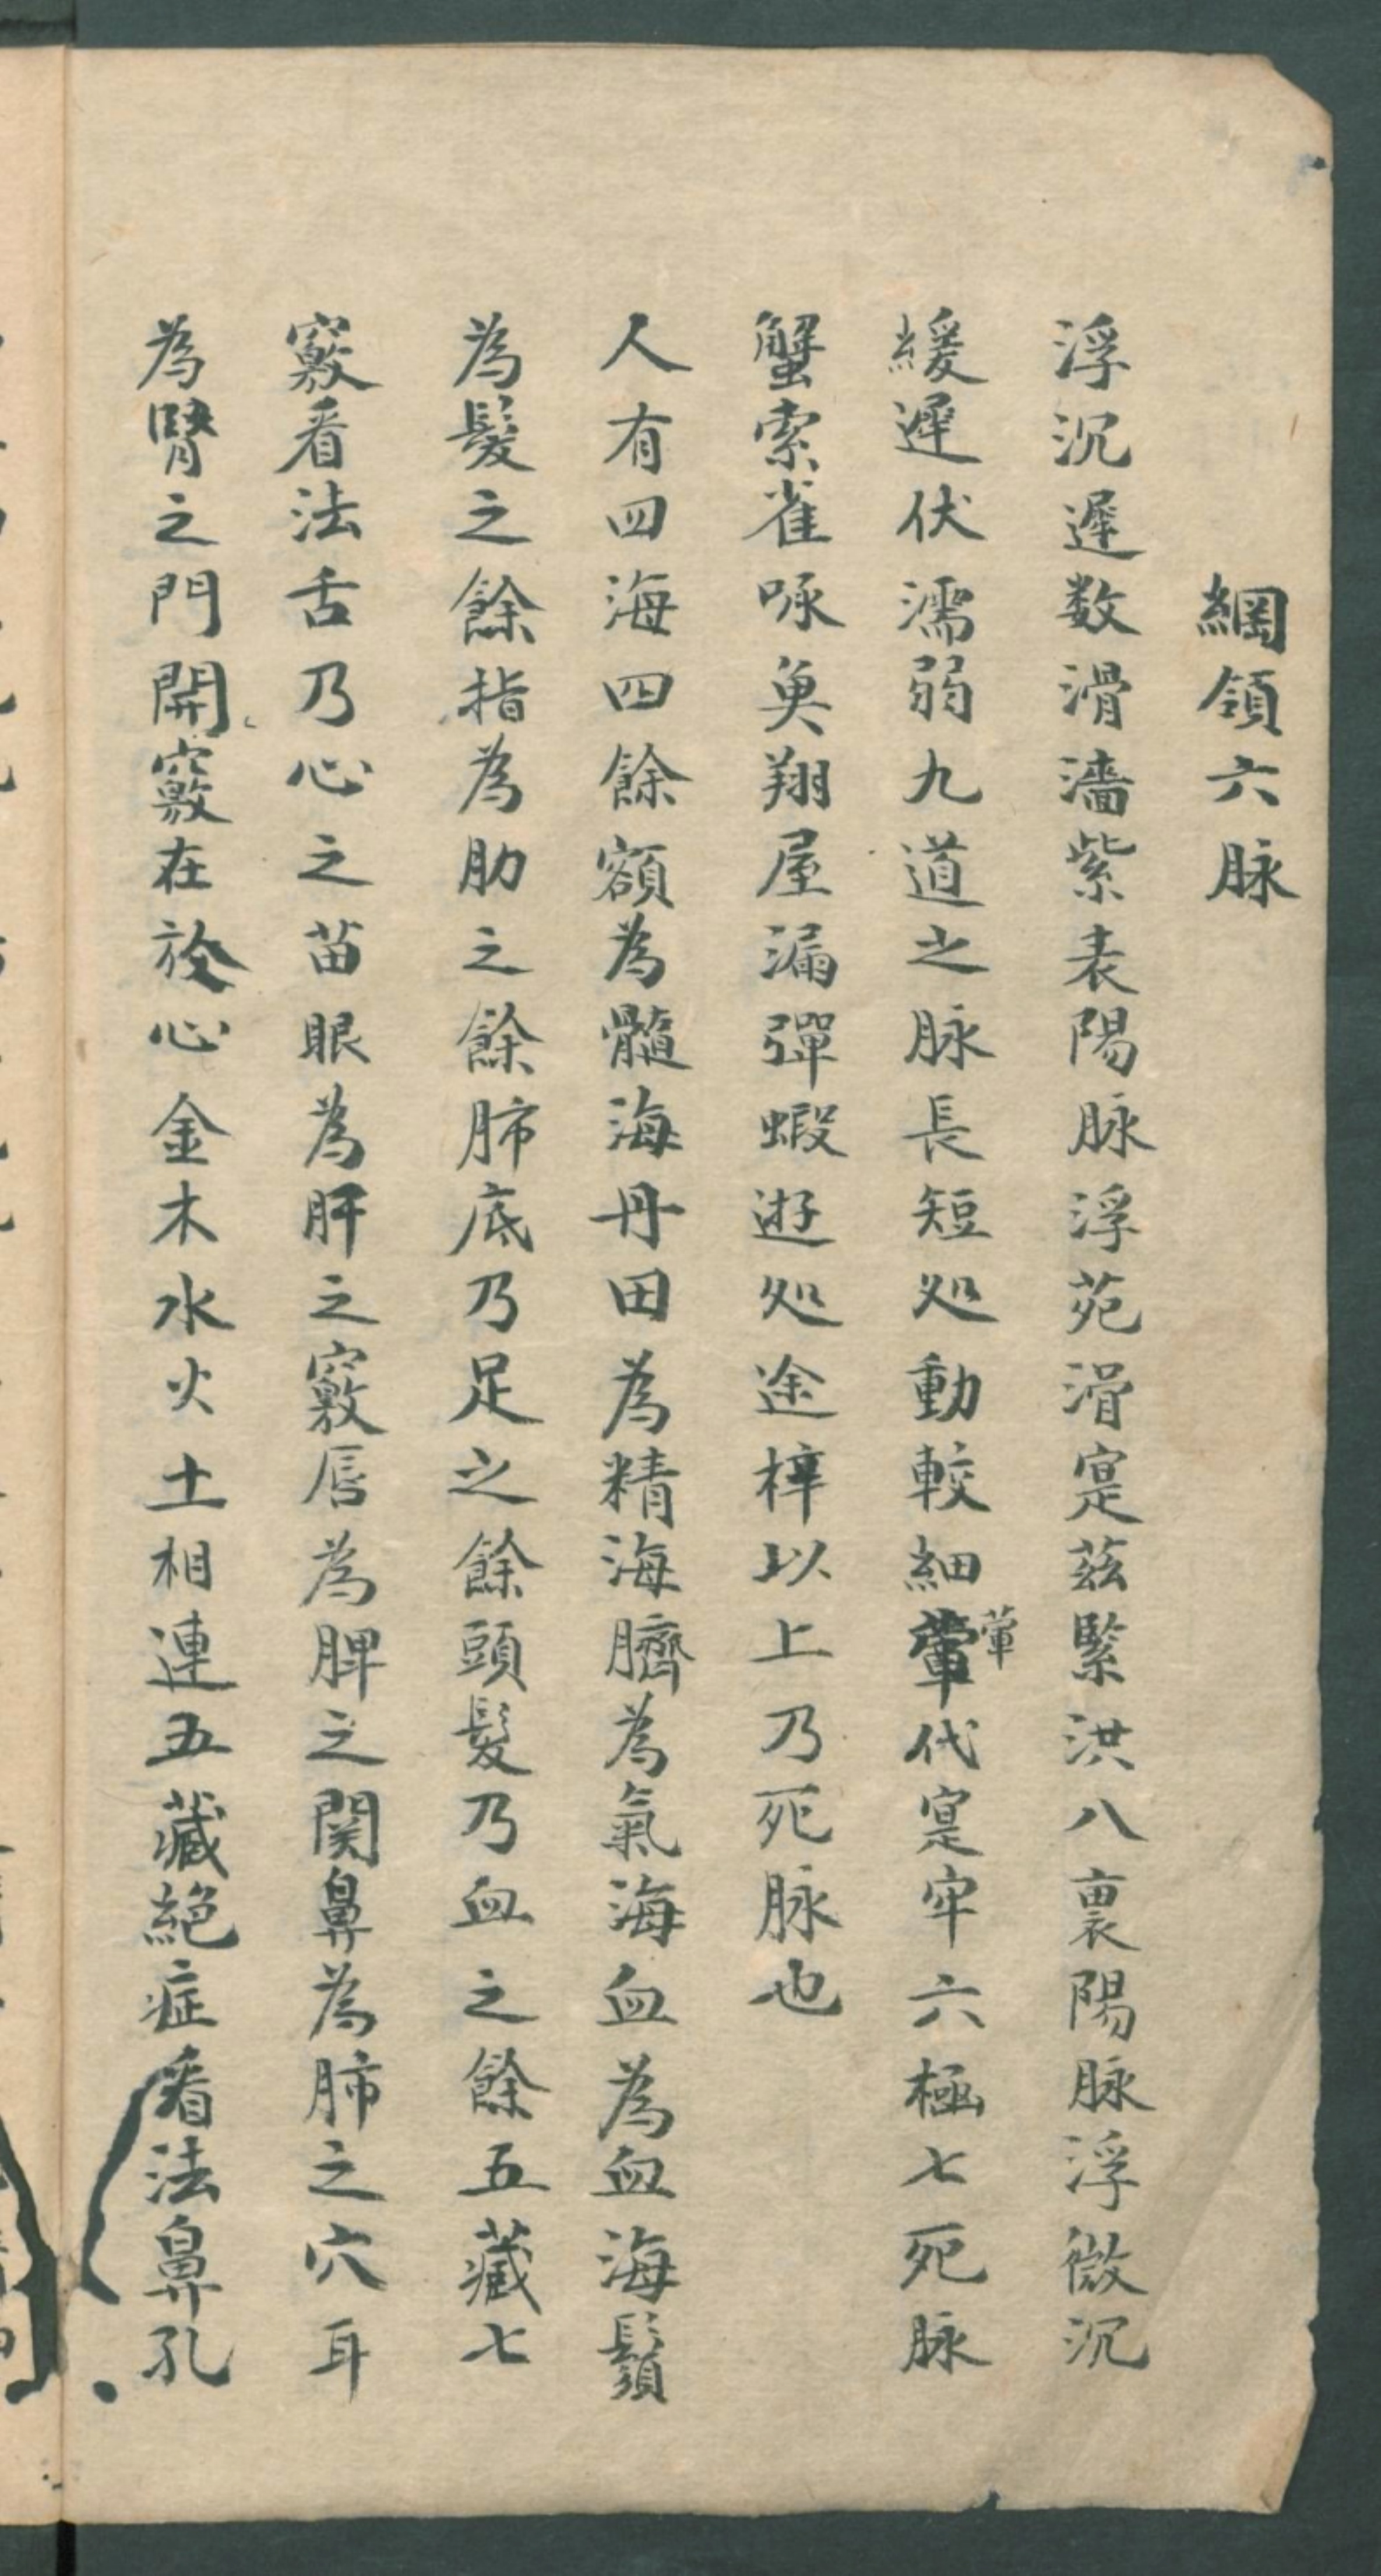 綱領六脉
浮沉遲数滑濇紫表陽脉浮芤滑寔茲緊洪八裏陽脉浮微沉
緩遲伏濡弱九道之脉長短処動較細葷葷代寔牢六極七死脉
蟹索雀啄奥翔屋漏彈蝦遊処途梓以上乃死脉也
人有四海四餘額為髓海丹田為精海臍為氣海血為血海鬚
為髮之餘指為肋之餘肺底乃足之餘頭髮乃血之餘五藏七
竅看法舌乃心之苗眼為肝之竅唇為脾之関鼻為肺之穴耳
為腎之門開竅在於心金木水火土相連五藏絕症看法鼻孔